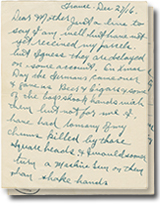 France Dec 27/16.
Dear Mother Just a line to
say I am well but have not
yet received my parcels
but I guess they are delayed
on some account. On Xmas
Day the Germans came over
to few us Beer & Cigars & some
of the boys shook hands with
them but not for me I
have had to many of my
chums killed by those
square heads & I would sooner
turn a Machine Gun on them
than shake hands